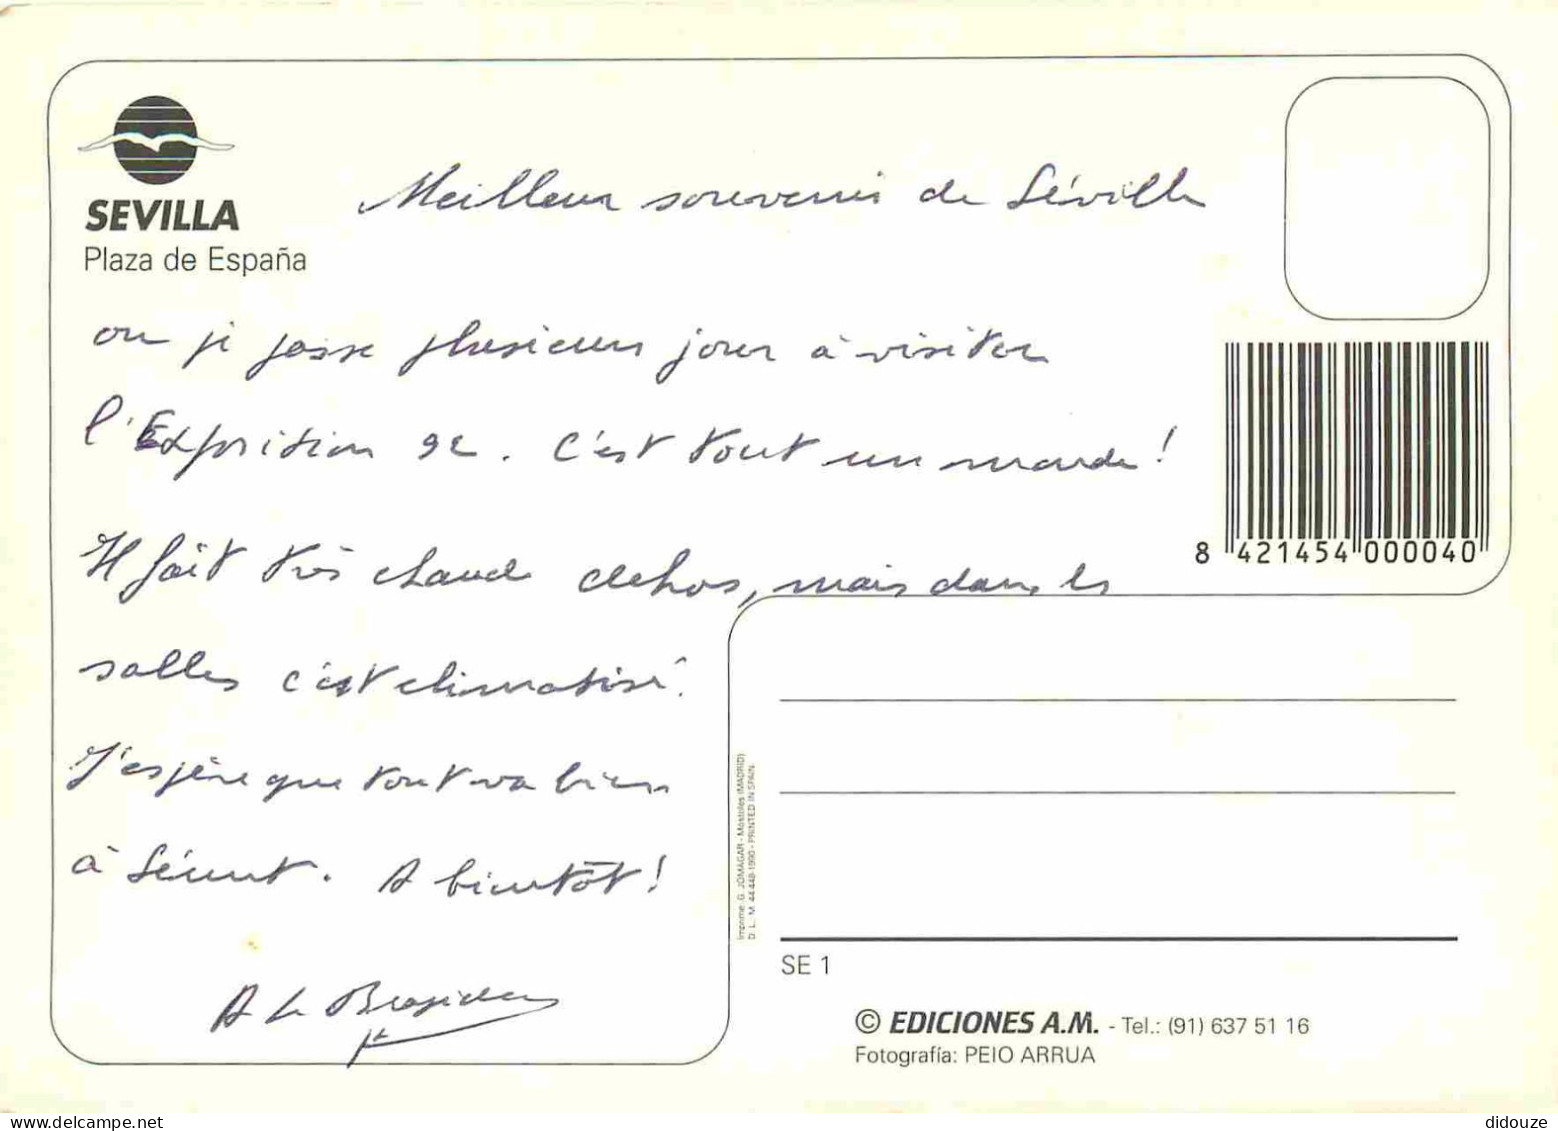 SEVILLA
Plaza de España
Meilleurs souvenirs de Séville
où je passe plusieurs jours à visiter
l'Exposition 92. C'est tout un monde!
Il fait très chaud dehors, mais dans les
salles c'est climatisé.
J'espère que tout va bien
à . A bientôt!
A Le
8 421454 000040
Imprime: G. JOMAGAR - Móstoles (MADRID)
D. L. M. 44.448-1990 - PRINTED IN SPAIN
SE 1
© EDICIONES A.M. - Tel.: (91) 637 51 16
Fotografía: PEIO ARRUA
didouze